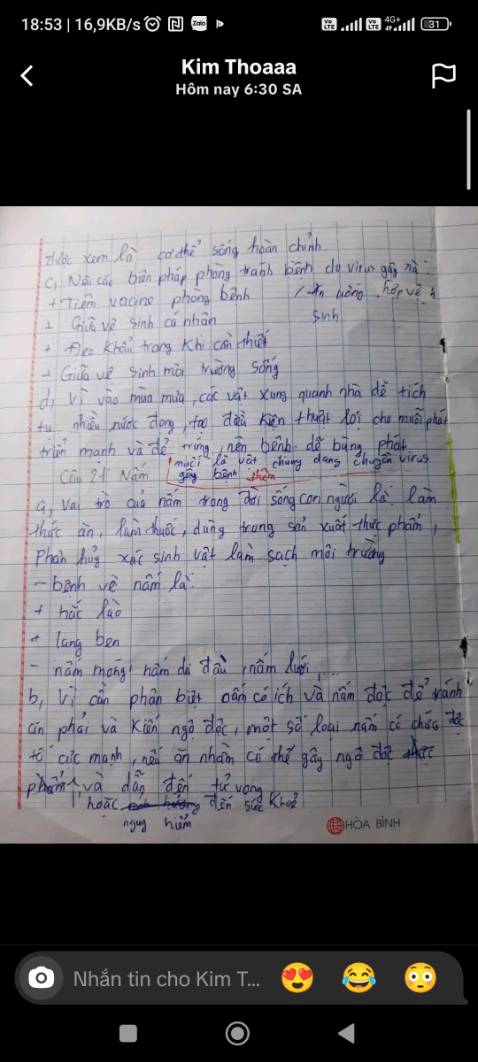 18:53 | 16,9KB/s
4G+
31
Kim Thoaaa
Hôm nay 6:30 SA
được xem là cơ thể sống hoàn chỉnh
c, Nêu các biện pháp phòng tránh bệnh do virus gây ra
+ Tiêm vacine phòng bệnh / ăn uống hợp vệ
+ Giữ vệ sinh cá nhân sinh
+ Đeo khẩu trang khi cần thiết
+ Giữ vệ sinh môi trường sống
d, Vì vào mùa mưa, các vật xung quanh nhà dễ tích
tụ nhiều nước đọng, tạo điều kiện thuật lợi cho muỗi phát
triển mạnh và đẻ trứng, nên bệnh dễ bùng phát
muỗi là vật chung dang chuyền virus
Câu 21 Nấm
gây bệnh thêm
a, Vai trò của nấm trong đời sống con người là làm
thức ăn, làm thuốc, dùng trong sản xuất thực phẩm,
Phân hủy xác sinh vật làm sạch môi trường
- bệnh về nấm là:
+ hắc lào
+ lang ben
- nấm móng, nấm da đầu, nấm lưỡi,...
b, Vì cần phân biệt nấm có ích và nấm độc để tránh
ăn phải và ngộ độc, một số loại nấm có chứa độc
tố cực mạnh, nếu ăn nhầm có thể gây ngộ độc thực
phẩm và dẫn đến tử vong
hoặc đến sức khoẻ
nguy hiểm
HÒA BÌNH
Nhắn tin cho Kim T...